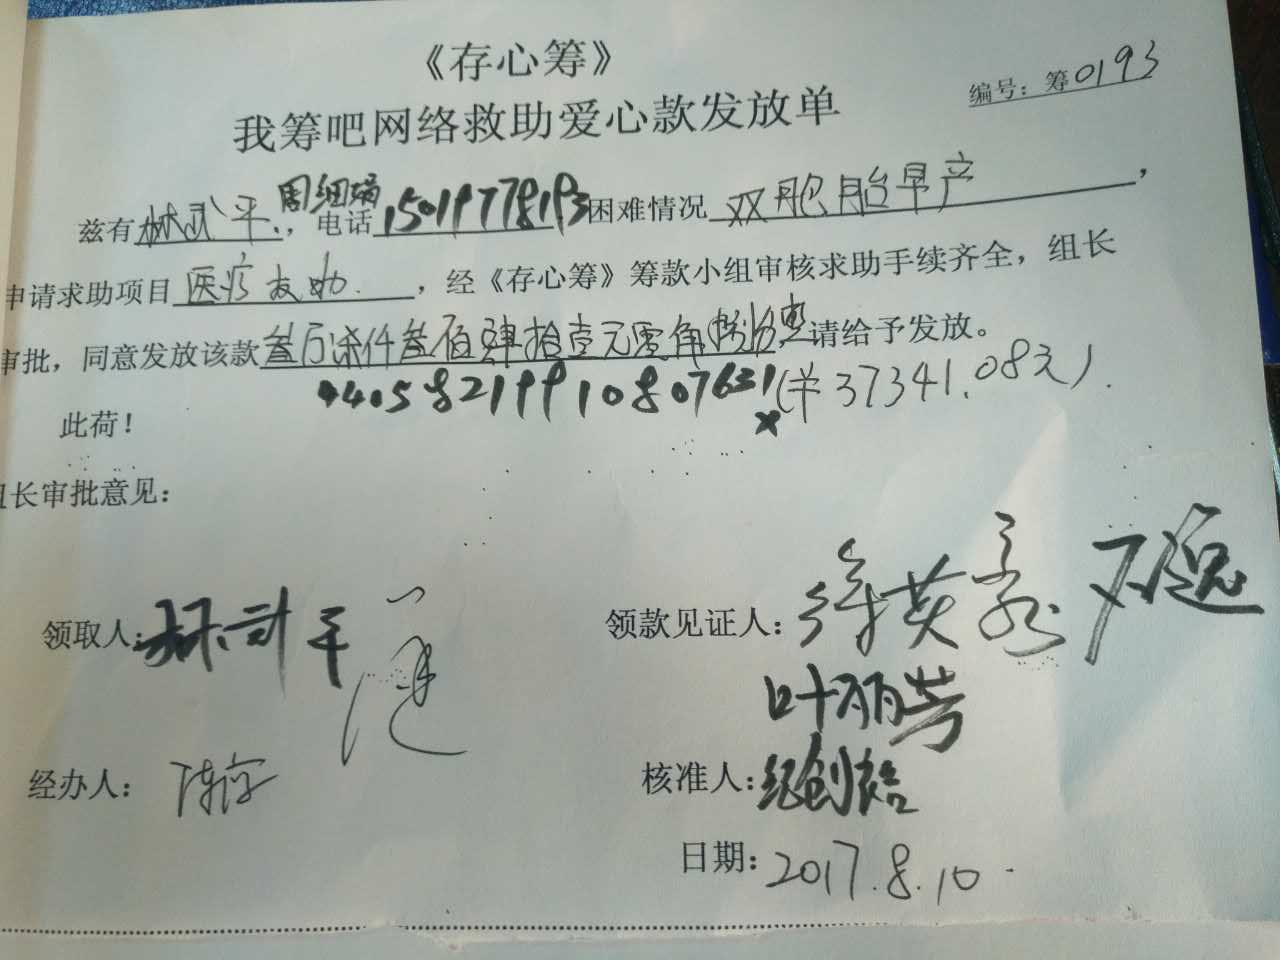 《存心筹》
编号：筹0193
我筹吧网络救助爱心款发放单
周细娟
兹有林武平，电话15019778193困难情况双胞胎早产，
申请求助项目医疗救助，经《存心筹》筹款小组审核求助手续齐全，组长
审批，同意发放该款叁万柒仟叁佰肆拾壹元零角捌分 请给予发放。
44058219910807631x (￥37341.08元).
此荷！
组长审批意见：
领取人：林武平 领款见证人：
叶丽芳
经办人： 核准人：纪创
日期：2017.8.10